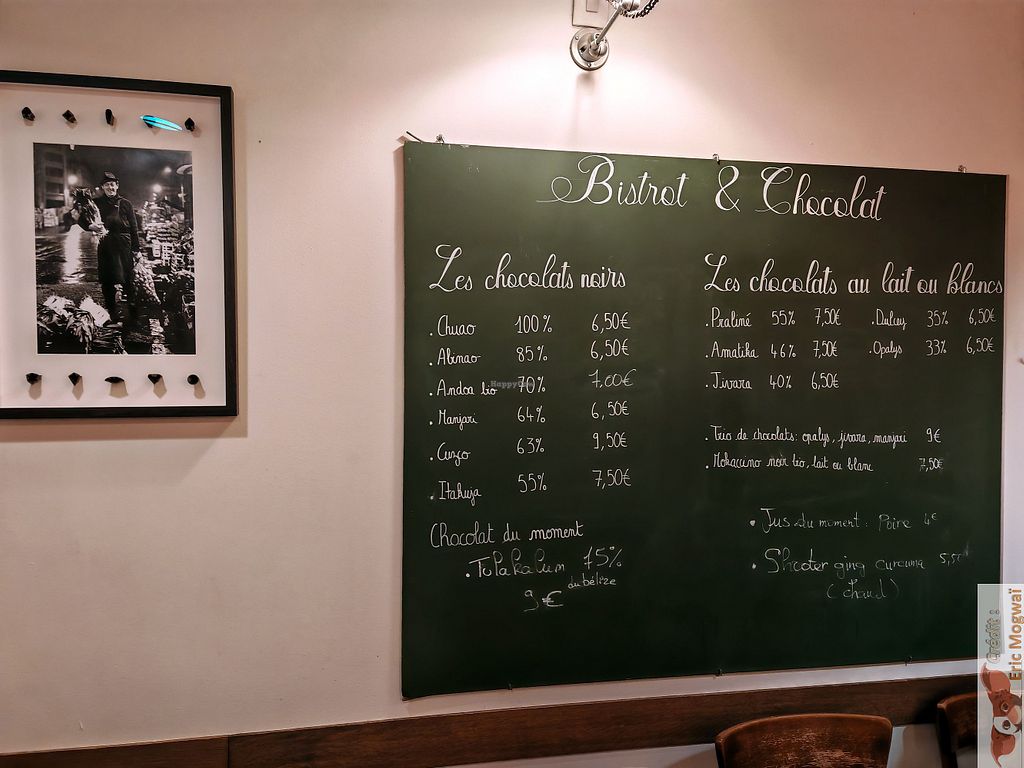 Bistrot & Chocolat
Les chocolats noirs
. Chuao 100% 6,50€
. Abinao 85% 6,50€
. Andoa bio 70% 7,00€
. Manjari 64% 6,50€
. Cuzco 63% 9,50€
. Itakuja 55% 7,50€
Chocolat du moment
. Tulakalum 75%
du bélize
9€
Les chocolats au lait ou blancs
. Praliné 55% 7,50€ . Dulcey 35% 6,50€
. Amatika 46% 7,50€ . Opalys 33% 6,50€
. Jivara 40% 6,50€
. Trio de chocolats: opalys, jivara, manjari 9€
. Mokaccino noir bio, lait ou blanc 7,50€
• Jus du moment : Poire 4€
• Shooter ging curcuma 5,5
(chaud)
HappyCow
Crédit :
Eric Mogwaï